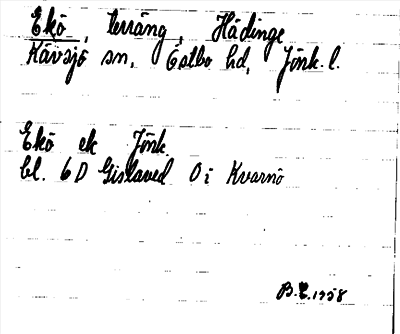 Ekö, terräng, Hädinge
Kävsjö sn, Östbo hd, Jönk. l.
Ekö ek Jönk.
bl. 6D Gislaved 0 i Kvarnö
B.E. 1958